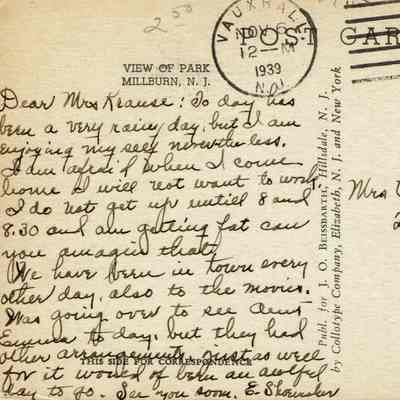 2 50
VAUXHALL
NOV 6
12 - M
1939
N.J.
POST CAR
VIEW OF PARK
MILLBURN, N. J.
Dear Mrs Krause: To day has
bern a very rainy day, but I am
enjoying my self neverthe less.
I am afraif when I come
home I will not want to work.
I do not get up untill 8 and
8.30 and am getting fat can
you amagin that.
We have bern in town every
other day, also to the movies.
Was going over to see Aunt
Emma to day, but they had
other arrangements, just as well
for it would of bern an awlful
day to go. See you soon. E. Shoemaker
THIS SIDE FOR CORRESPONDENCE
Publ. for J. O. BEISSBARTH, Hillsdale, N. J.
by Collotype Company, Elizabeth, N. J. and New York
Mrs